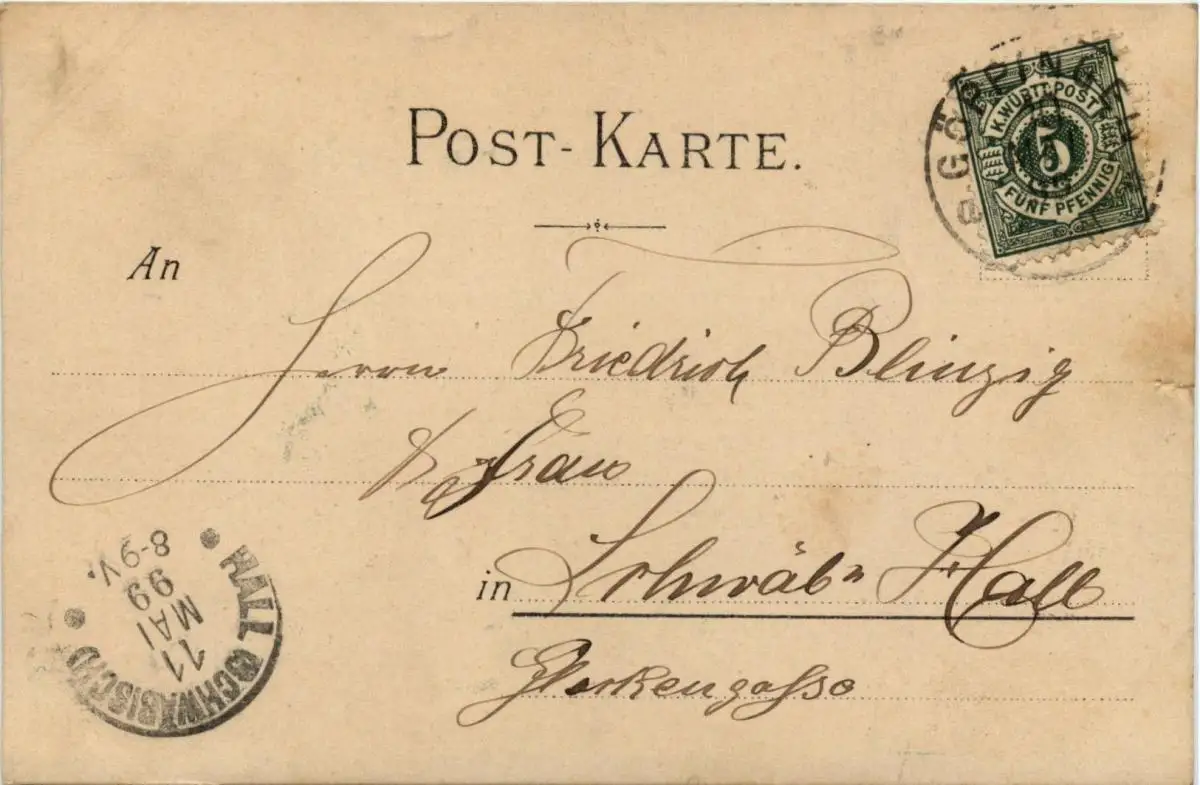 POST-KARTE.
GÖPPINGEN
K.WÜRTT.POST
5
FÜNF PFENNIG
An
Herrn Friedrich Blinzig
& Frau
in Schwäb. Hall
Glockengasse
HALL (SCHWÄBISCH)
11
MAI
99
8-9V.